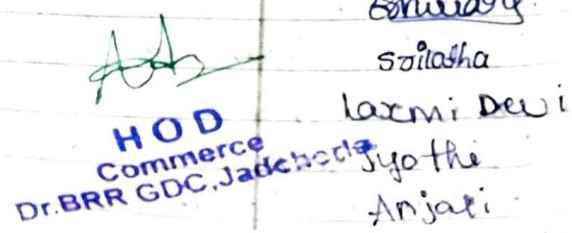 Srilatha
Laxmi Devi
Jyothi
Anjali
HOD
Commerce
Dr.BRR GDC, Jadcherla